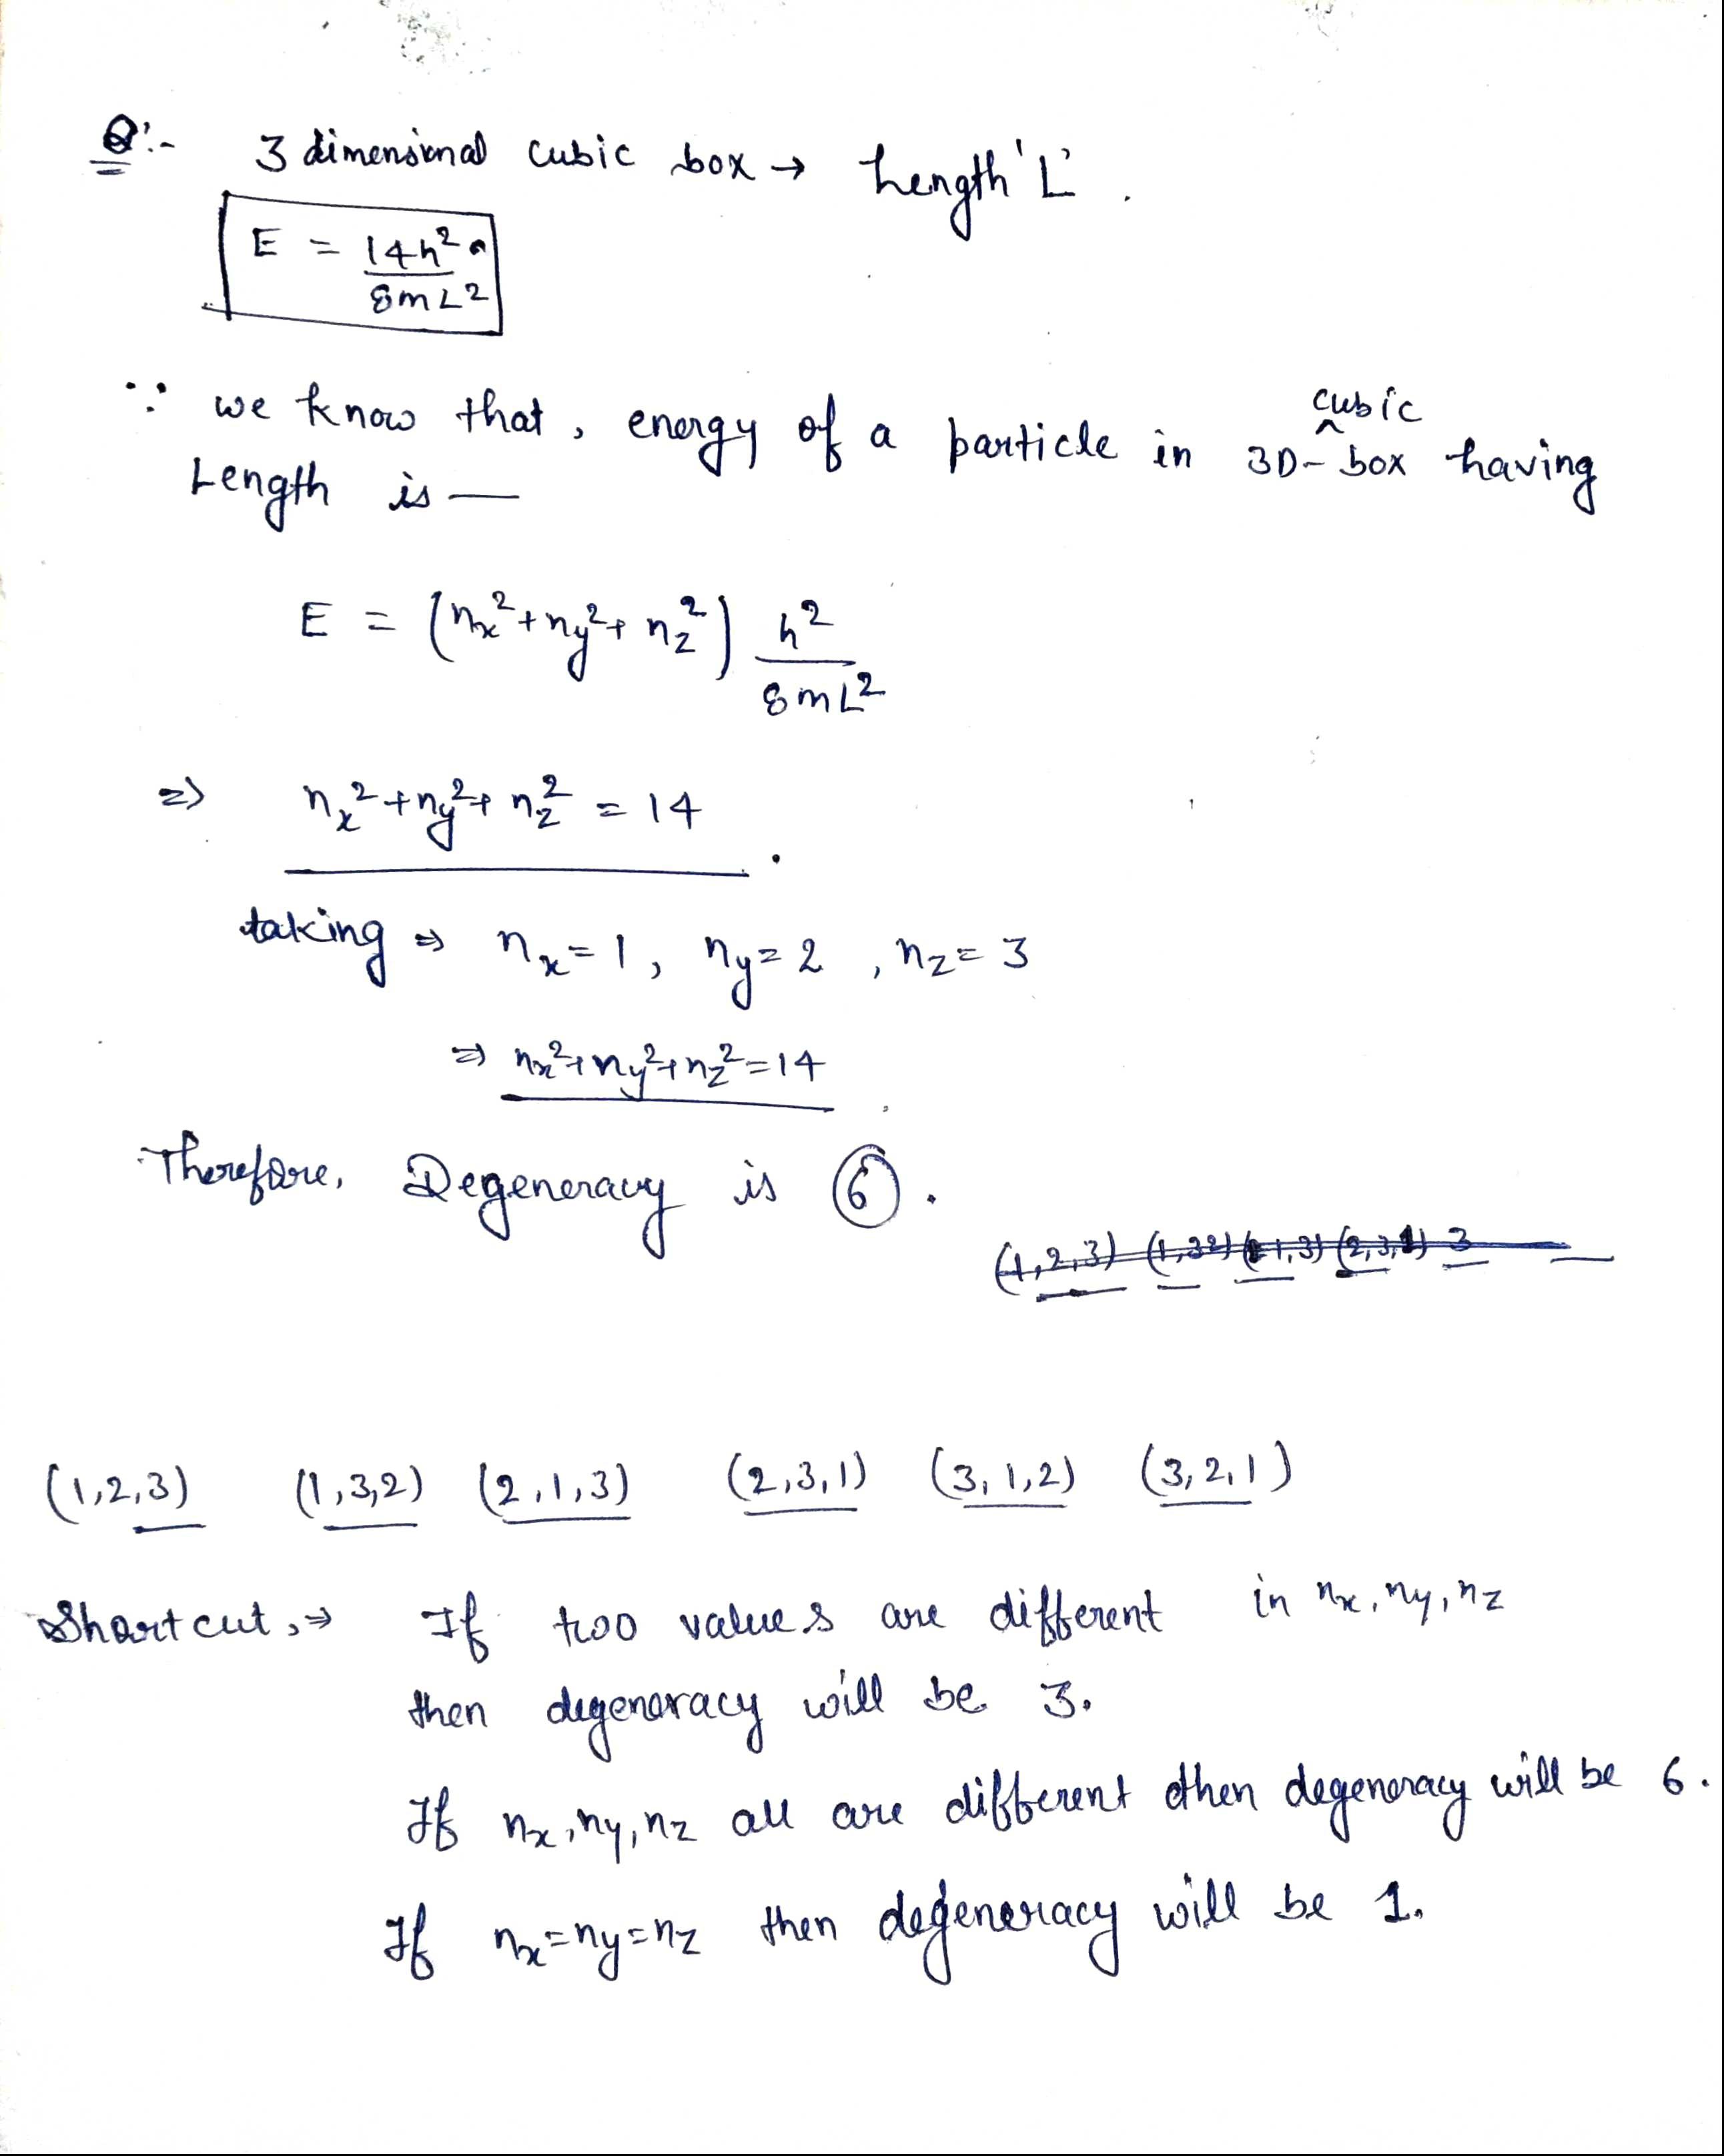 Q:- 3 dimensional cubic box → Length 'L'.
E = 14h²
8mL²
∵ we know that, energy of a particle in 3D- cubic box having
Length is —
E = (nx² + ny² + nz²) h²
8mL²
=> nx² + ny² + nz² = 14
taking => nx = 1, ny = 2, nz = 3
=> nx² + ny² + nz² = 14
Therefore, Degeneracy is 6.
(1,2,3) (1,3,2) (2,1,3) (2,3,1) (3,1,2) (3,2,1)
Shortcut, => If two values are different in nx, ny, nz
then degeneracy will be 3.
If nx, ny, nz all are different then degeneracy will be 6.
If nx = ny = nz then degeneracy will be 1.